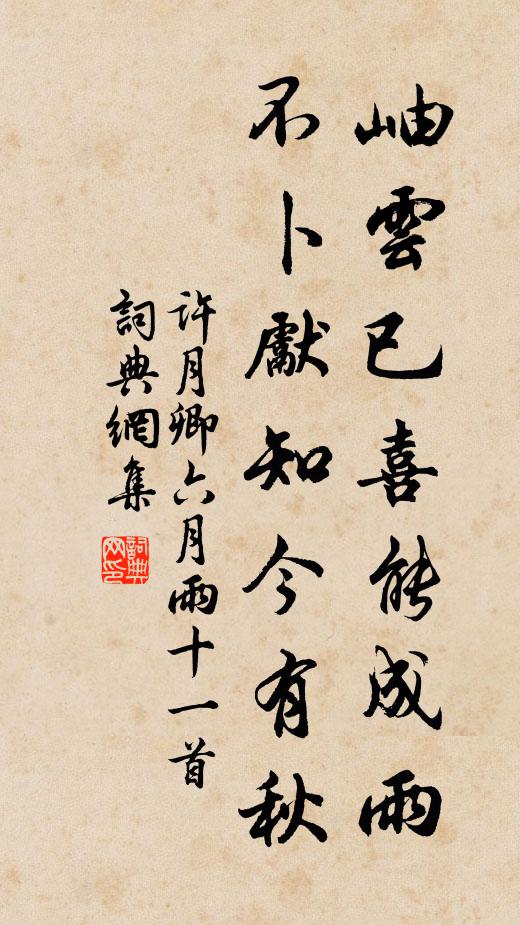 岫雲已喜能成雨
不卜獻知今有秋
許月卿六月雨十一首
詞典網集
詞典网印